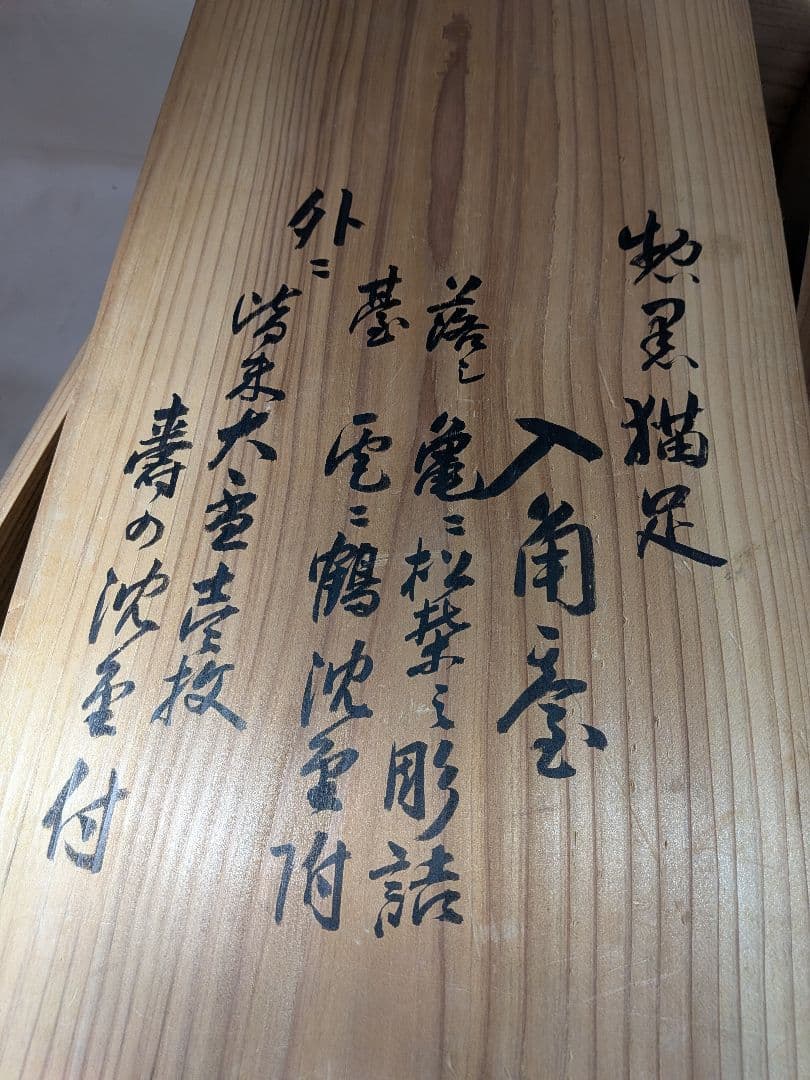 惣黒猫足
入角臺
落し 亀ニ松葉之彫詰
臺 雲ニ鶴沈金附
外ニ
皆朱大盃壱枚
壽の沈金付